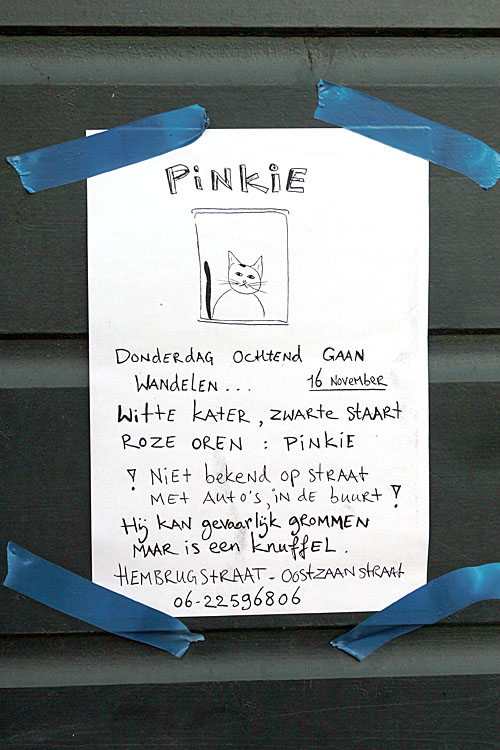 PiNKiE
DONDERDAG OCHTEND GAAN
WANDELEN... 16 NOVEMBER
WITTE KATER, ZWARTE STAART
ROZE OREN : PINKIE
! NIET bEKEND OP STRAAT
MET AUTO'S, IN DE BUURT !
Hij KAN gEVAARLijK GROMMEN
MAAR is EEN KNUFFEL.
HEMBRUGSTRAAT - OOSTZAANSTRAAT
06-22596806